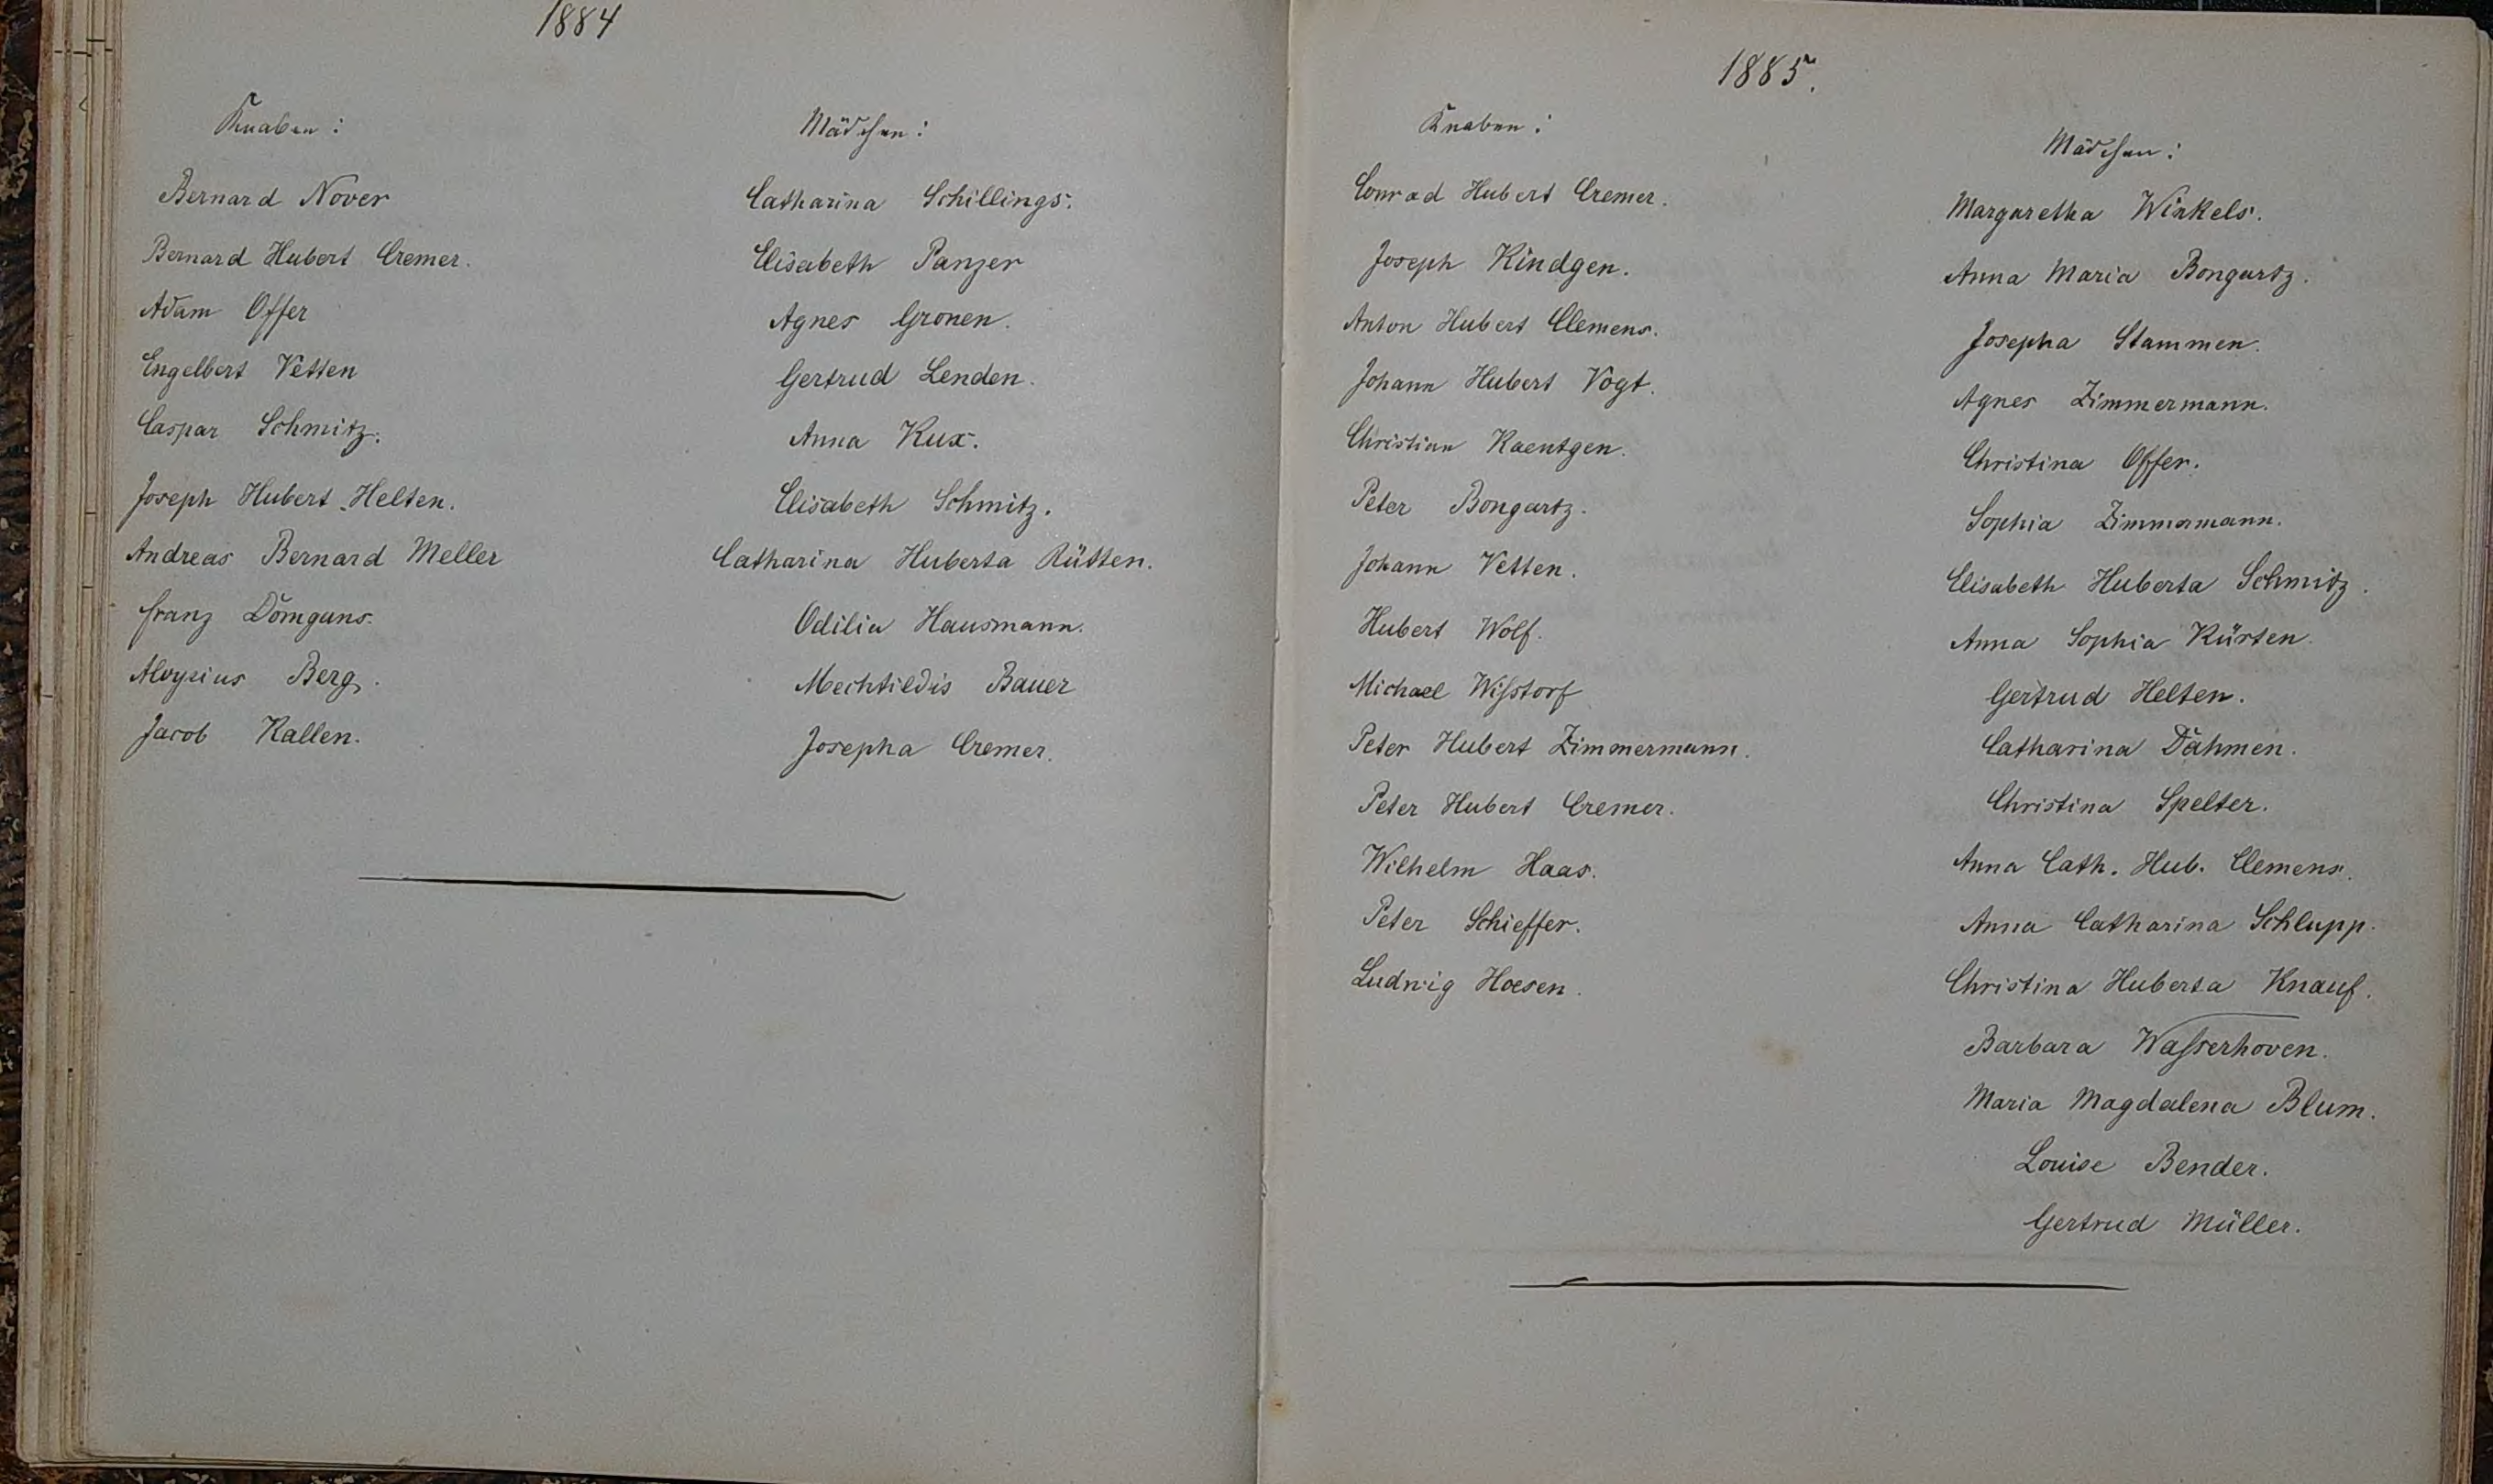 1884
Knaben:
Bernard Nover
Bernard Hubert Cremer.
Adam Offer
Engelbert Vetten
Caspar Schmitz.
Joseph Hubert Helten.
Andreas Bernard Meller
Franz Dömgans.
Aloysius Berg.
Jacob Kallen.
Mädchen:
Catharina Schillings.
Elisabeth Panzer
Agnes Gronen.
Gertrud Lenden.
Anna Kux.
Elisabeth Schmitz.
Catharina Huberta Rütten.
Odilia Hausmann.
Mechtildis Bauer
Josepha Cremer.
1885.
Knaben:
Conrad Hubert Cremer.
Joseph Kindgen.
Anton Hubert Clemens.
Johann Hubert Vogt.
Christian Kaentgen.
Peter Bongartz.
Johann Vetten.
Hubert Wolf.
Michael Wißstorf
Peter Hubert Zimmermann.
Peter Hubert Cremer.
Wilhelm Haas.
Peter Schieffer.
Ludwig Hoesen.
Mädchen:
Margaretha Winkels.
Anna Maria Bongartz.
Josepha Stammen.
Agnes Zimmermann.
Christina Offer.
Sophia Zimmermann.
Elisabeth Huberta Schmitz.
Anna Sophia Kürten.
Gertrud Helten.
Catharina Dahmen.
Christina Spelter.
Anna Cath. Hub. Clemens.
Anna Catharina Schlupp.
Christina Huberta Knauf.
Barbara Wasserhoven.
Maria Magdalena Blum.
Louise Bender.
Gertrud Müller.